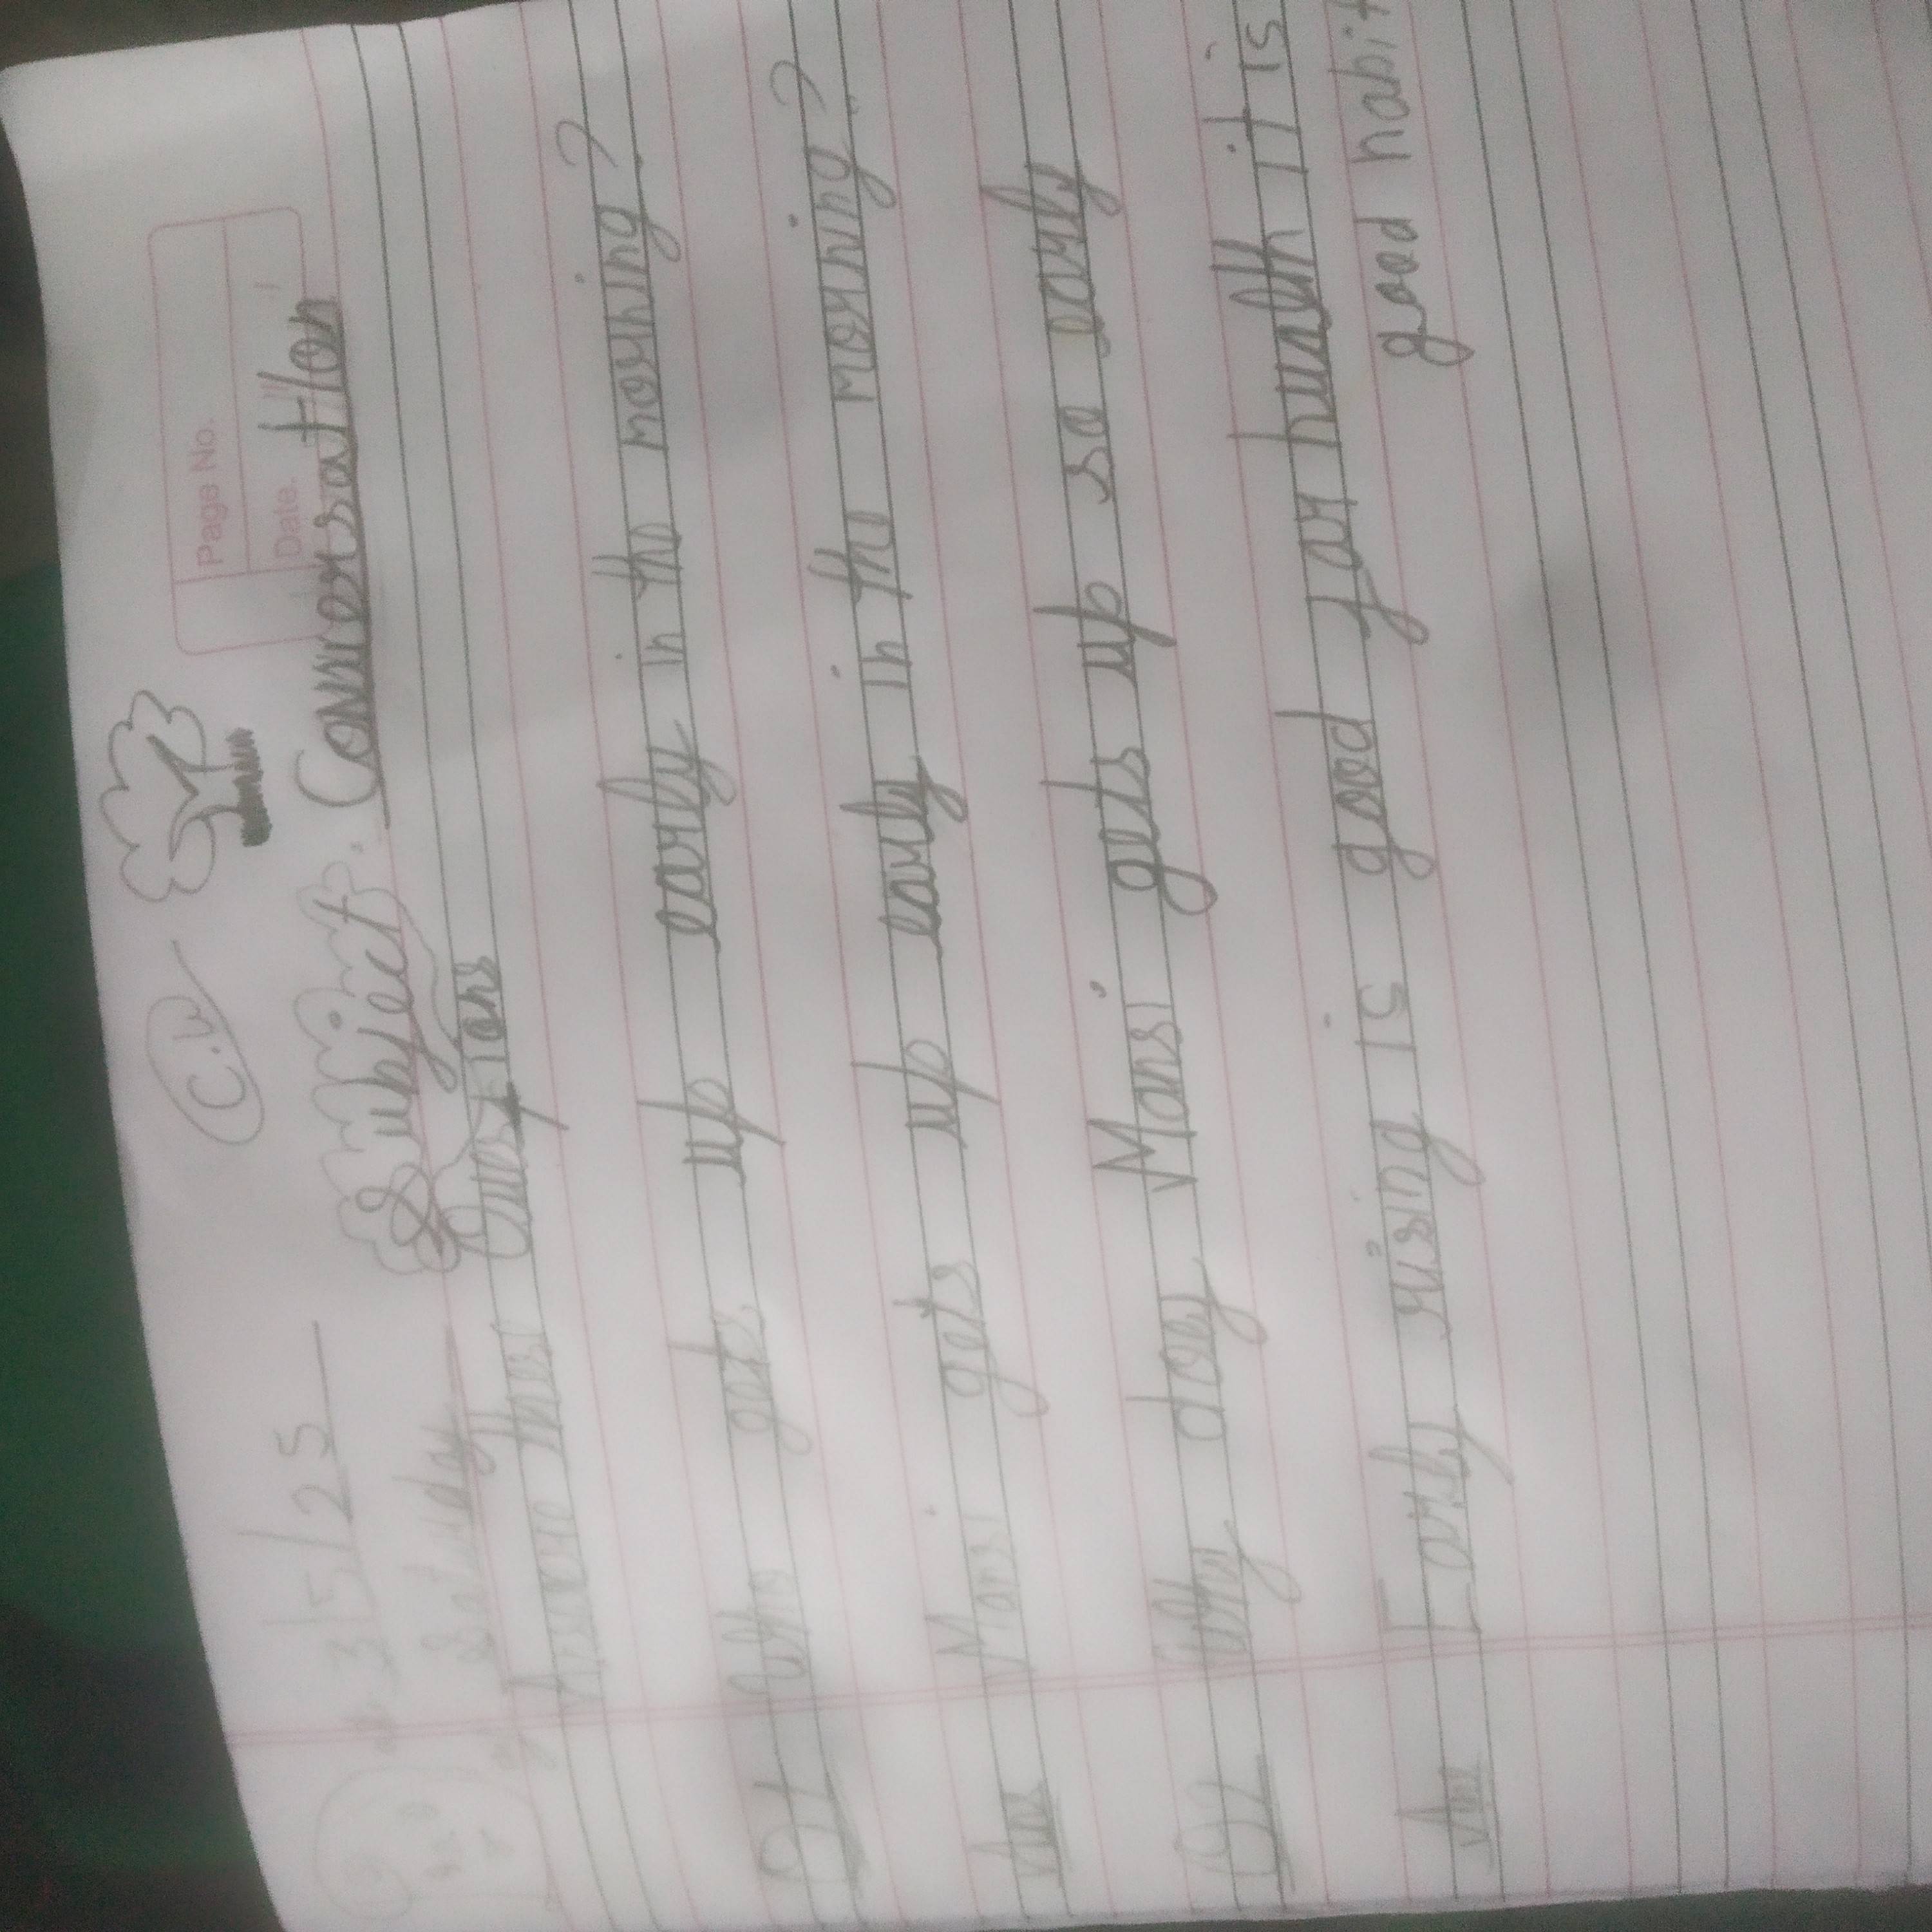 C.W
Page No.
Date.
3/5/25
Subject. Conversation
Saturday
Answer these Questions
Q1 Who gets up early in the morning?
Ans Mansi gets up early in the morning?
Q2 Why does Mansi gets up so early
Ans Early rising is good for health it is
good habit